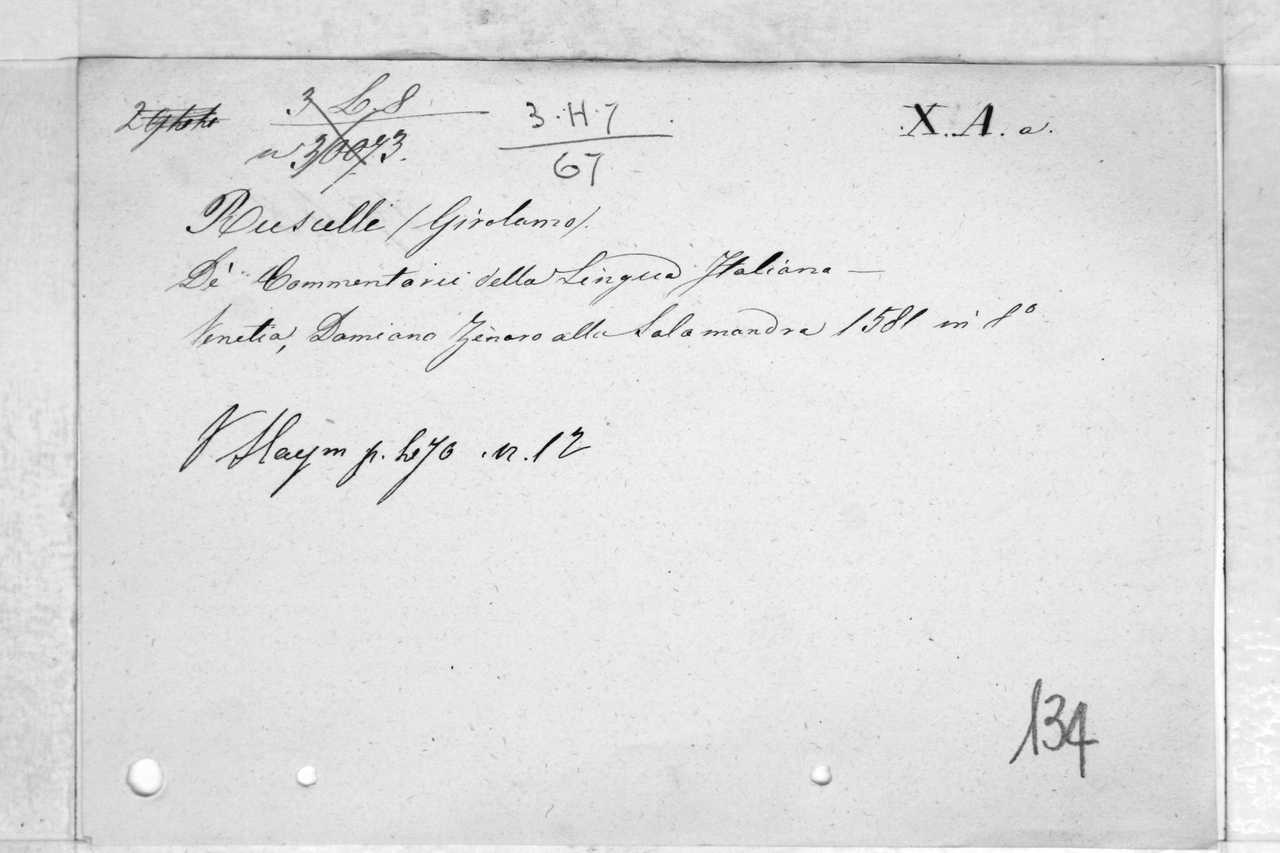 3 L. 8 3·H·7 X. A. a.
n 30073. 67
Ruscelli (Girolamo).
Dè Commentarii della Lingua Italiana —
Venetia, Damiano Zenaro alla Salamandra 1581 in 8º
V Haym p. 470 n. 12
134